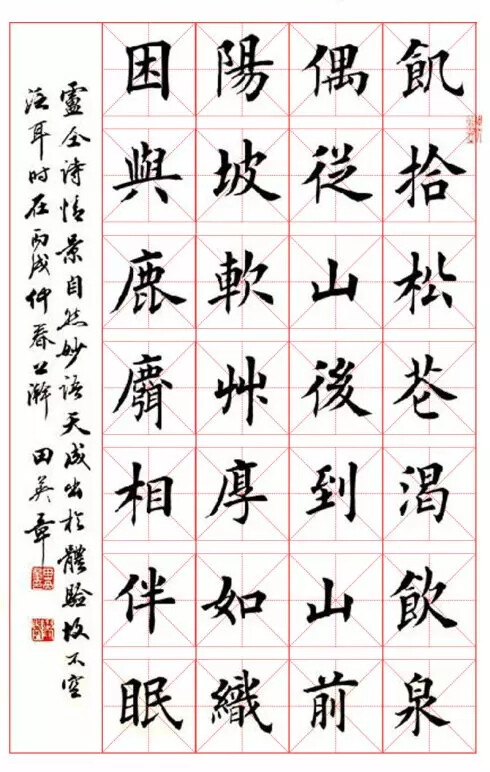 飢拾松花渴飲泉
偶從山後到山前
陽坡軟艸厚如織
困與鹿麛相伴眠
靈全诗情景自然妙语天成出於體驗故不空
泛耳时在丙戌仲春上澣 田英章